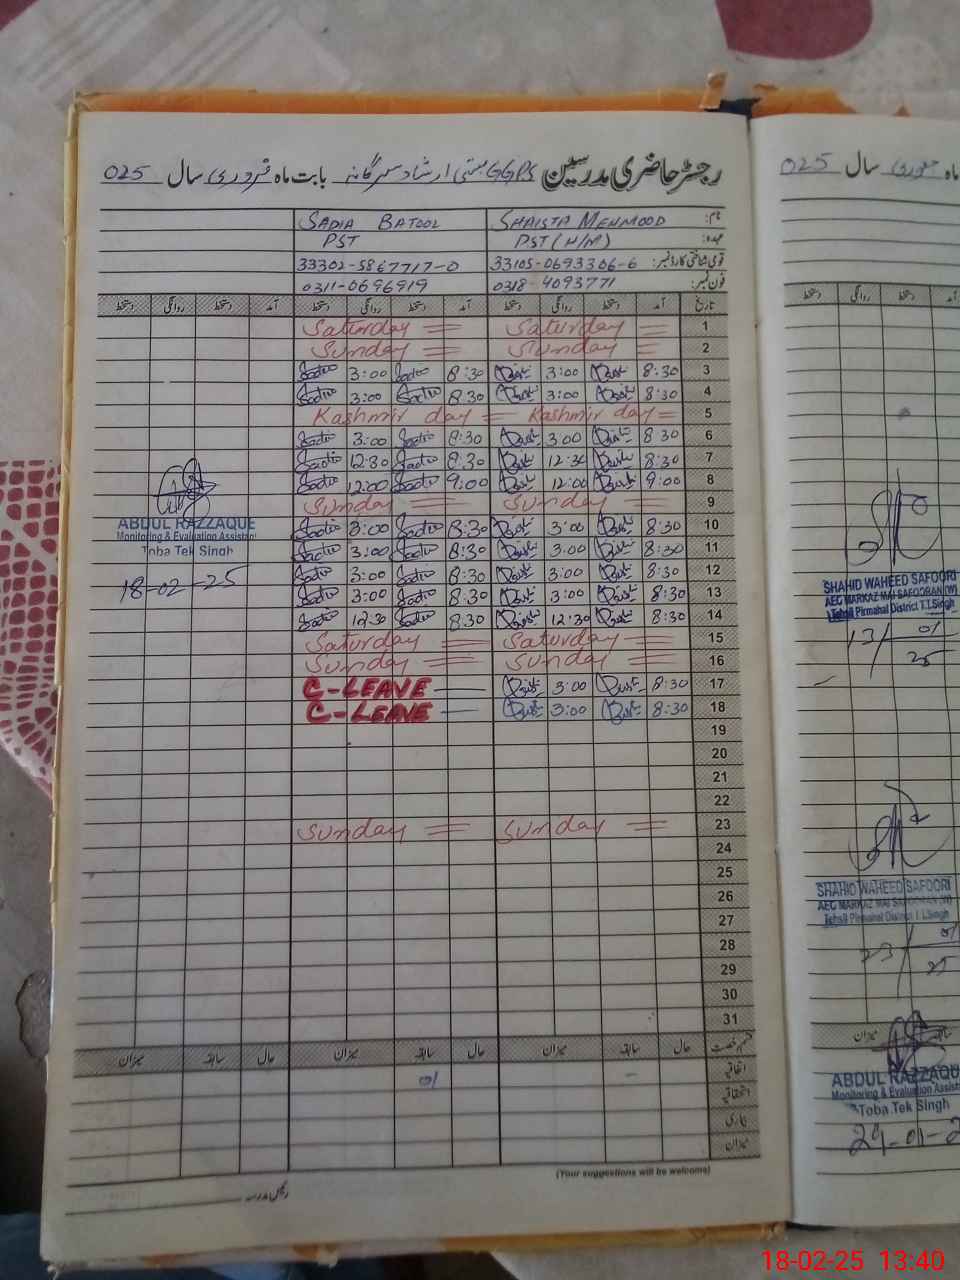 رجسٹر حاضری مدرسین GGPS بستی ارشاد سرگانہ بابت ماہ فروری سال 025
نام: SHAISTA MEHMOOD SADIA BATOOL
عہدہ: PST (H/M) PST
قومی شناختی کارڈ نمبر: 33105-0693306-6 33302-5867717-0
فون نمبر: 0318-4093771 0311-0696919
تاریخ آمد دستخط روانگی دستخط آمد دستخط روانگی دستخط آمد دستخط روانگی دستخط
1 Saturday = Saturday =
2 Sunday = Sunday =
3 8:30 3:00 8:30 Sadia 3:00 Sadia
4 8:30 3:00 8:30 Sadia 3:00 Sadia
5 Kashmir day = Kashmir day =
6 8 30 3 00 8:30 Sadia 3:00 Sadia
7 8:30 12:30 8:30 Sadia 12:30 Sadia
8 9:00 12:00 9:00 Sadia 12:00 Sadia
9 Sunday = Sunday =
10 8:30 3:00 8:30 Sadia 3:00 Sadia
11 8:30 3:00 8:30 Sadia 3:00 Sadia
12 8:30 3:00 8:30 Sadia 3:00 Sadia
13 8:30 3:00 8:30 Sadia 3:00 Sadia
14 8:30 12:30 8:30 Sadia 12:30 Sadia
15 Saturday = Saturday =
16 Sunday = Sunday =
17 8:30 3:00 C-LEAVE —
18 8:30 3:00 C-LEAVE —
19
20
21
22
23 Sunday = Sunday =
24
25
26
27
28
29
30
31
قسم رخصت حال سابقہ میزان حال سابقہ میزان حال سابقہ میزان
اتفاقیہ - 01
استحقاقیہ
بیماری
میزان
(Your suggestions will be welcome)
رئیس مدرسہ
ABDUL RAZZAQUE
Monitoring & Evaluation Assistant
Toba Tek Singh
18-02-25
ماہ جنوری سال 025
آمد دستخط روانگی دستخط
SHAHID WAHEED SAFOORI
AEO MARKAZ MAI SAFOORAN (W)
Tehsil Pirmahal District T.T.Singh
13/ 01
25
SHAHID WAHEED SAFOORI
AEO MARKAZ MAI SAFOORAN (W)
Tehsil Pirmahal District T.T.Singh
23/ 01
25
سابقہ میزان
ABDUL RAZZAQU
Monitoring & Evaluation Assist
Toba Tek Singh
29-01-2
18-02-25 13:40